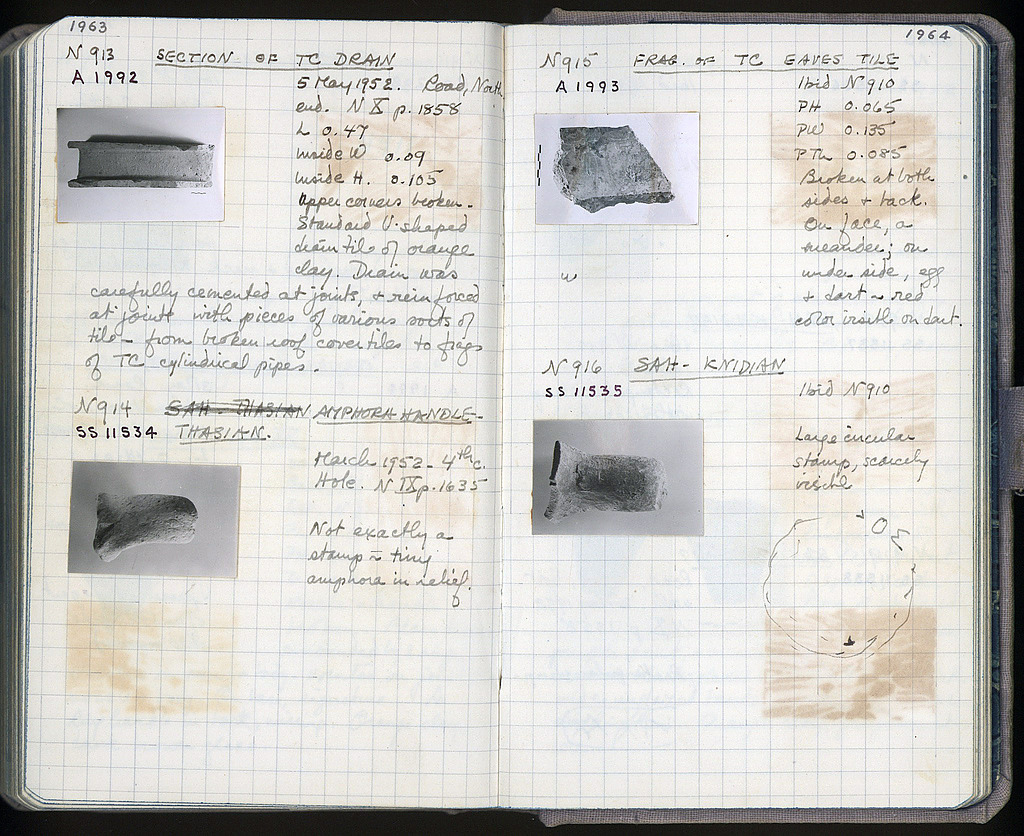 1963
N 913 SECTION OF TC DRAIN
A 1992
5 May 1952. Road, North
end. N X p. 1858
L 0.47
inside W 0.09
inside H. 0.105
Upper corners broken.
Standard U-shaped
drain tile of orange
clay. Drain was
carefully cemented at joints, + reinforced
at joints with pieces of various sorts of
tile - from broken roof cover tiles to frags
of TC cylindrical pipes.
N 914 SAH - THASIAN AMPHORA HANDLE -
SS 11534 THASIAN.
March 1952 - 4th c.
Hole. N IX p. 1635
Not exactly a
stamp ~ tiny
amphora in relief.
1964
N 915 FRAG. OF TC EAVES TILE
A 1993
Ibid N 910
PH 0.065
PW 0.135
PTh 0.085
Broken at both
sides + back.
On face, a
meander; on
under side, egg
+ dart ~ red
color visible on dart.
N 916 SAH - KNIDIAN
SS 11535
Ibid N 910
Large circular
stamp, scarcely
visible